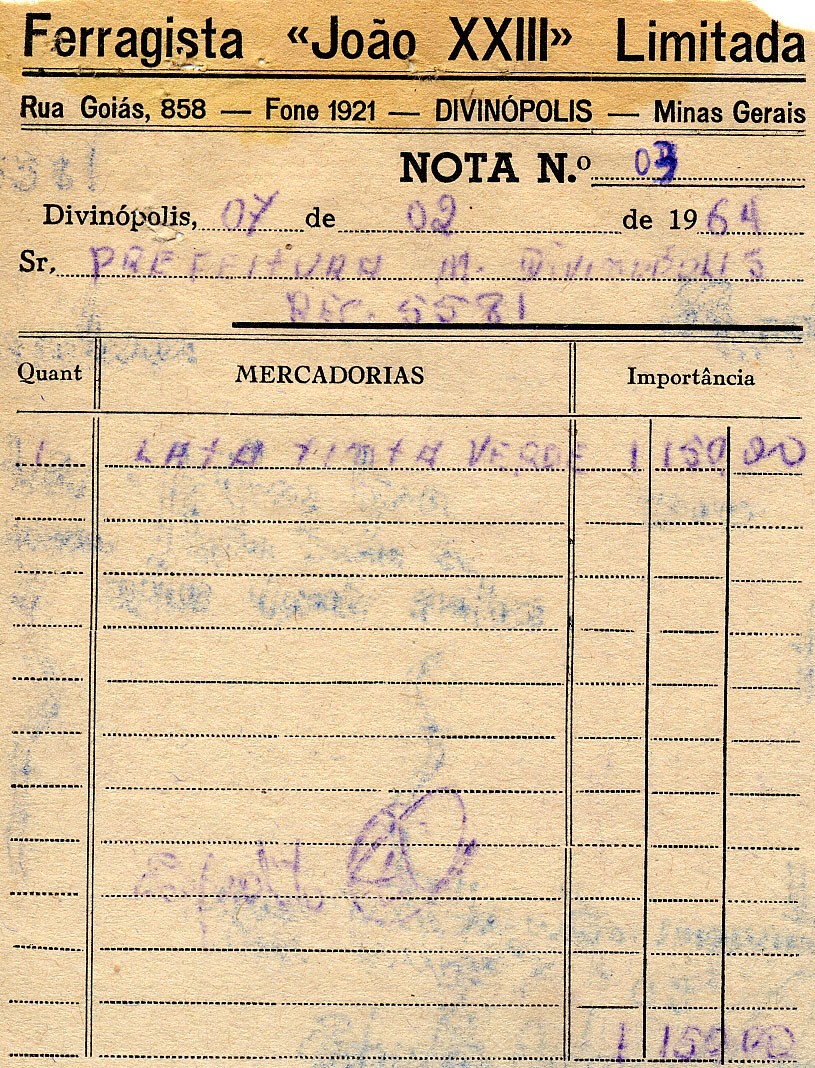 Ferragista «João XXIII» Limitada
Rua Goiás, 858 — Fone 1921 — DIVINÓPOLIS — Minas Gerais
NOTA N.º 03
Divinópolis, 07 de 02 de 1964
Sr. PREFEITURA M. DIVINÓPOLIS
REC. 5581
Quant MERCADORIAS Importância
1 LATA TINTA VERDE 1 150,00
1 150,00